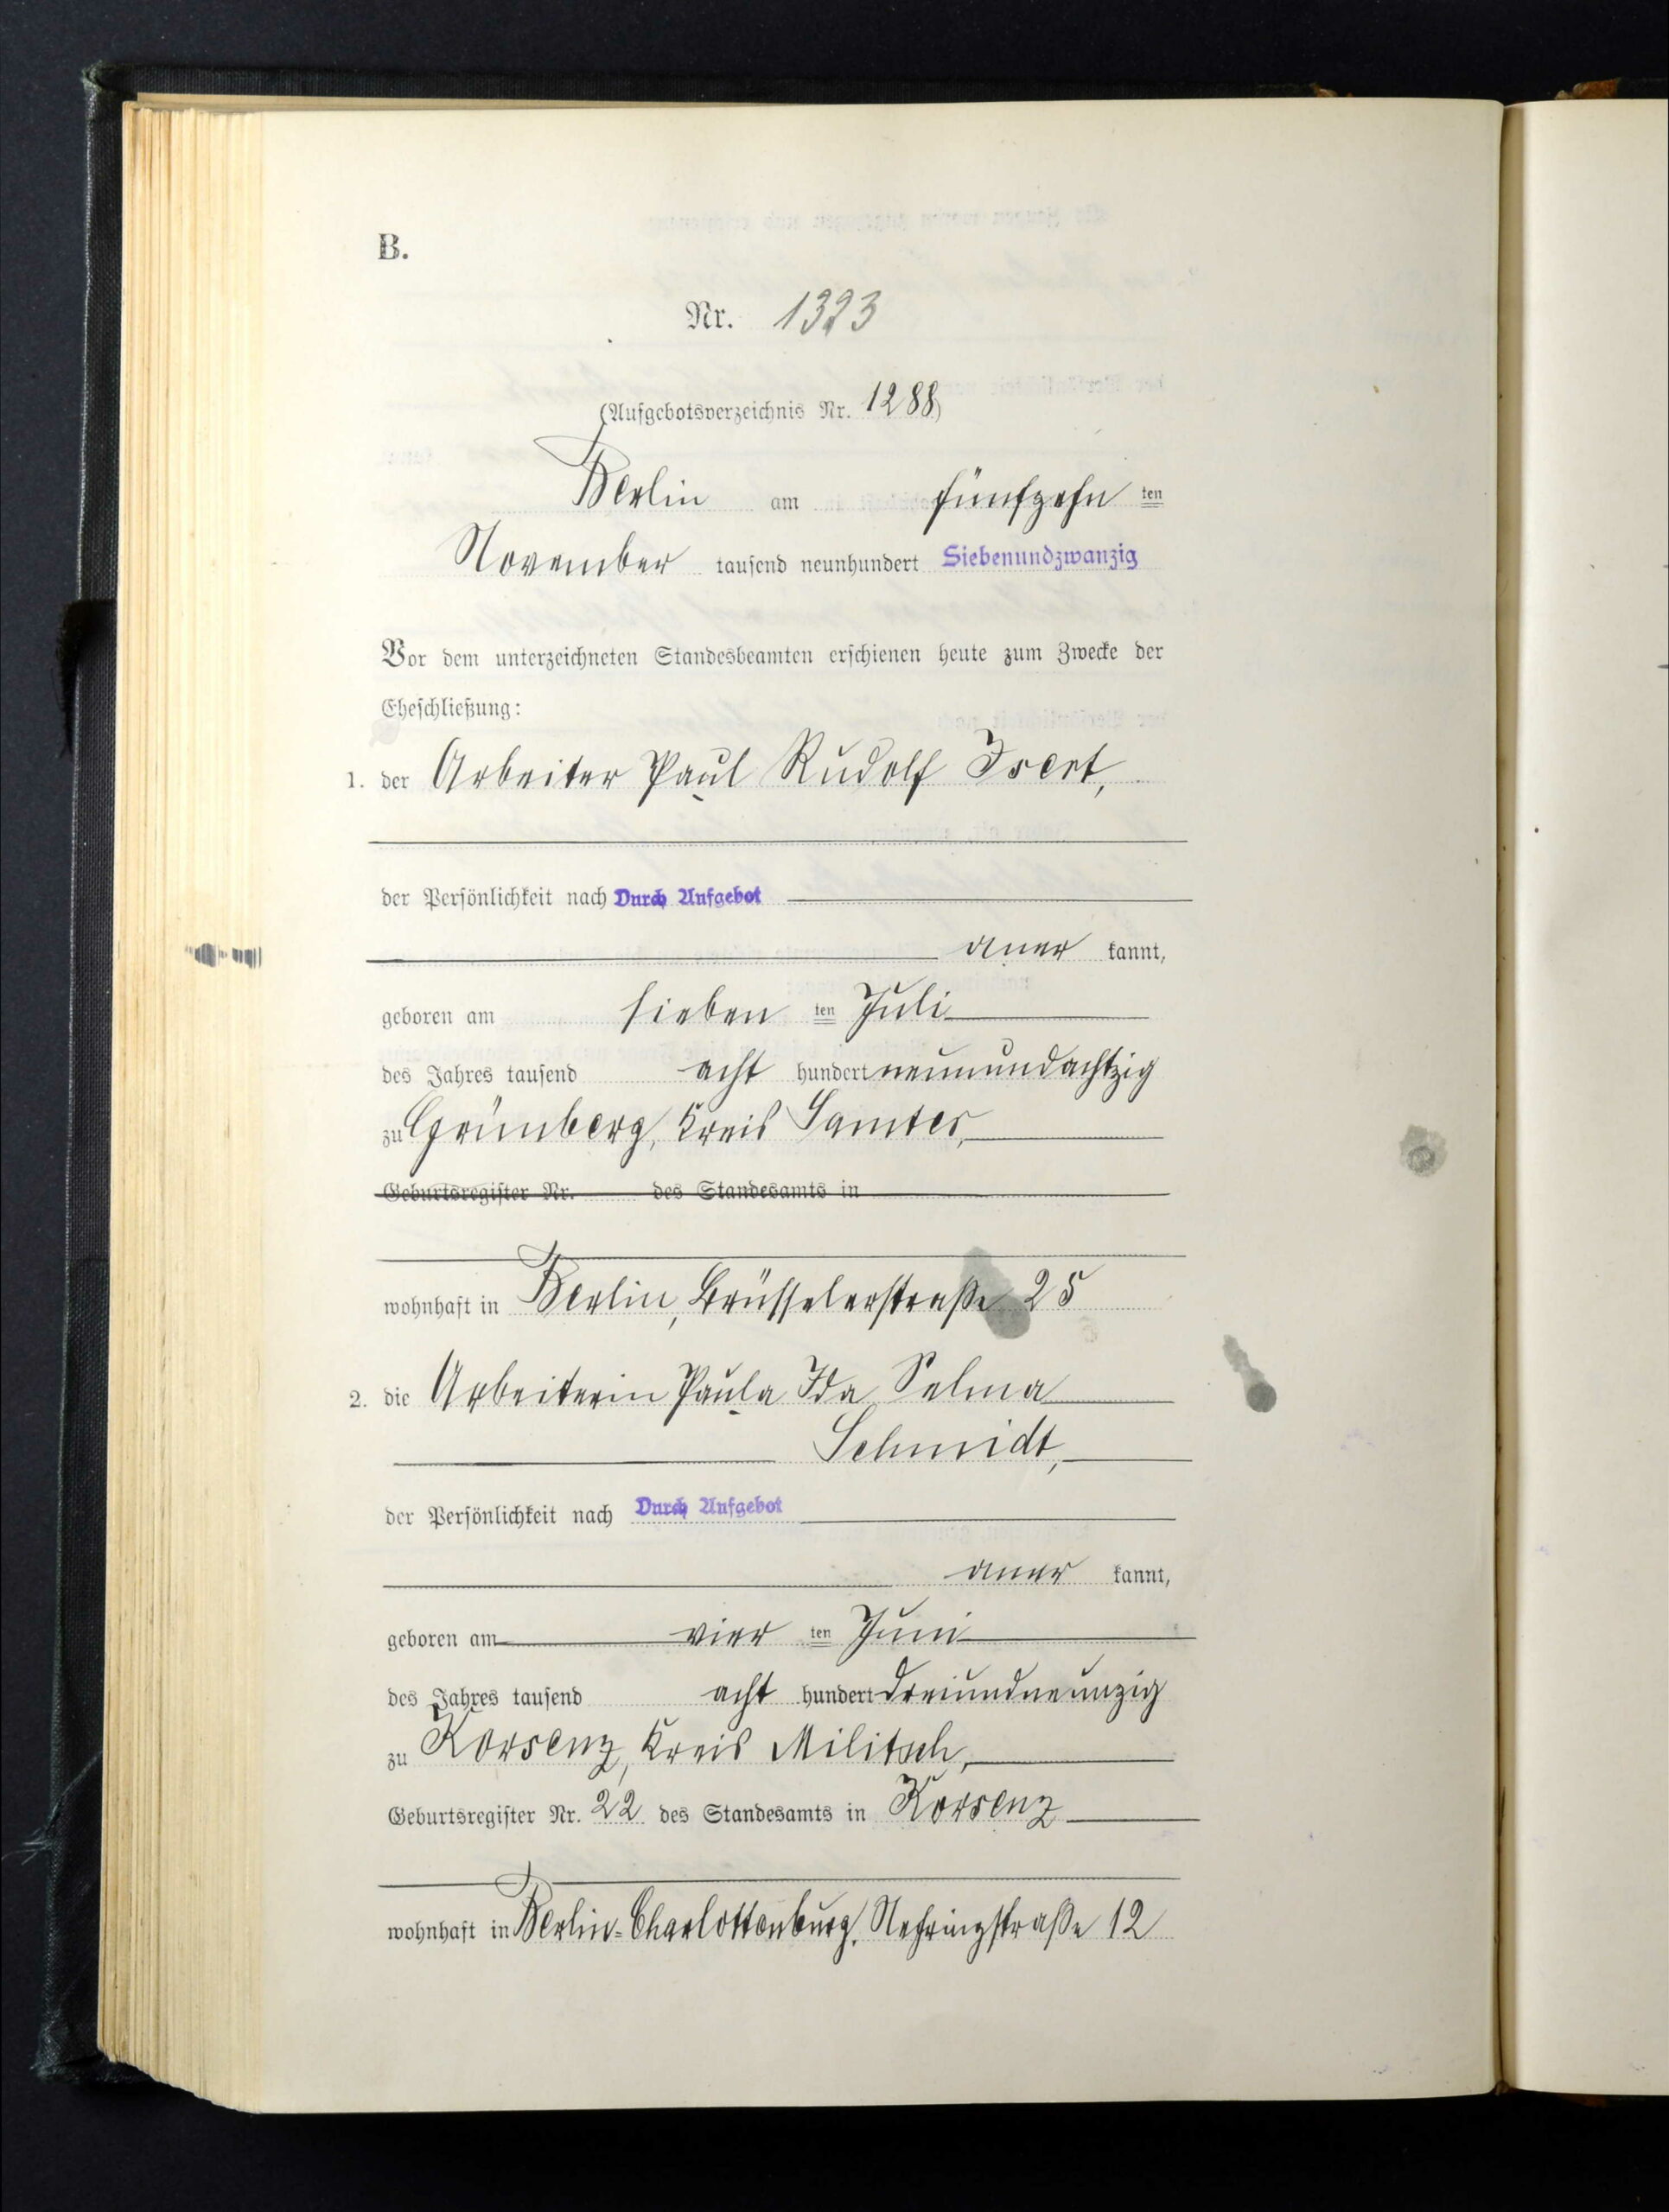 B.
Nr. 1323
(Aufgebotsverzeichnis Nr. 1288)
Berlin am fünfzehn ten
November tausend neunhundert Siebenundzwanzig
Vor dem unterzeichneten Standesbeamten erschienen heute zum Zwecke der
Eheschließung:
1. der Arbeiter Paul Rudolf Isert,
der Persönlichkeit nach Durch Aufgebot
aner kannt,
geboren am sieben ten Juli
des Jahres tausend acht hundert neunundachtzig
zu Grünberg, Kreis Samter,
Geburtsregister Nr. des Standesamts in
wohnhaft in Berlin, Brüsselerstraße 25
2. die Arbeiterin Paula Ida Selma
Schmidt,
der Persönlichkeit nach Durch Aufgebot
aner kannt,
geboren am vier ten Juni
des Jahres tausend acht hundert dreiundneunzig
zu Korsenz, Kreis Militsch,
Geburtsregister Nr. 22 des Standesamts in Korsenz
wohnhaft in Berlin-Charlottenburg, Nehringstraße 12